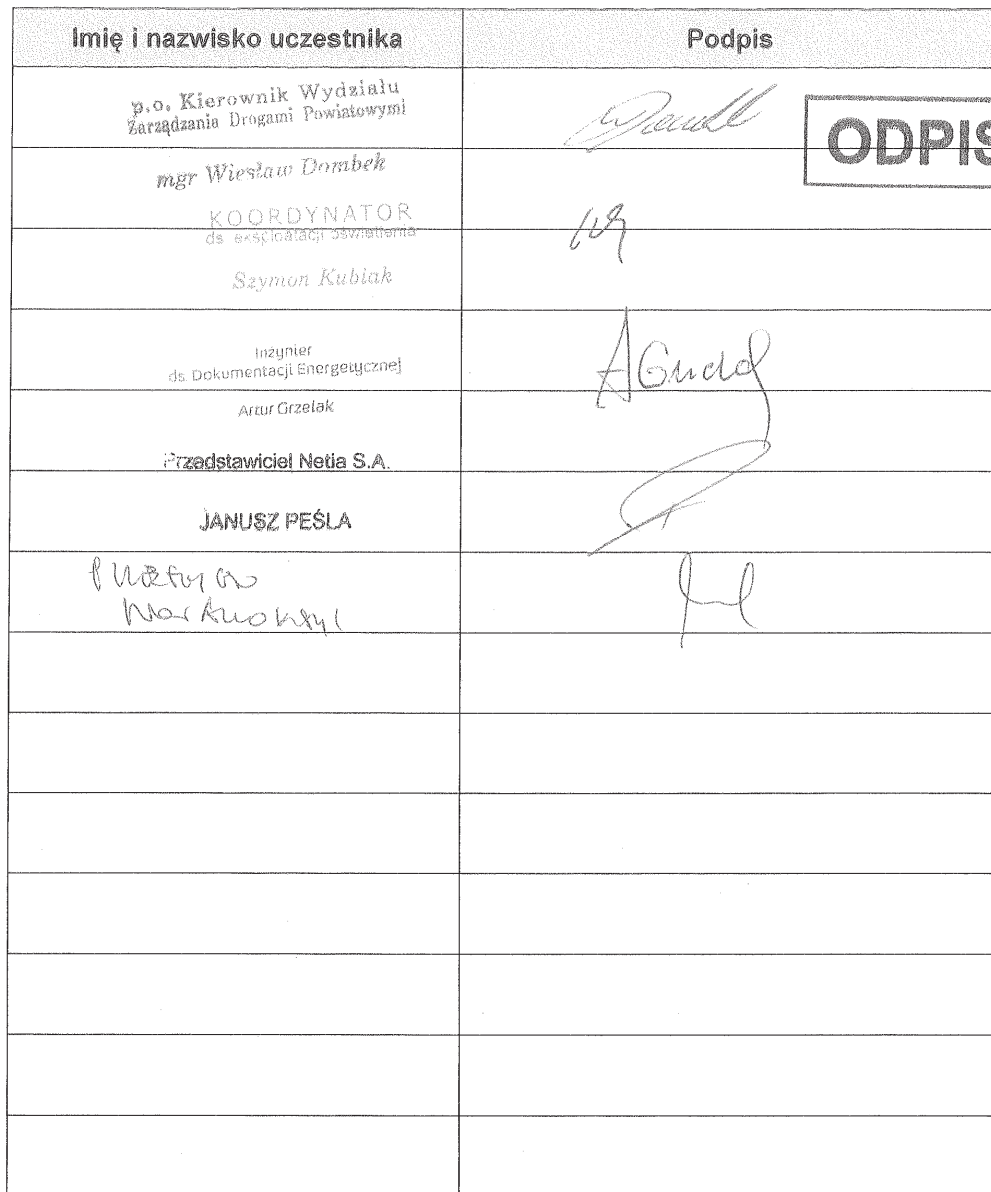 Imię i nazwisko uczestnika
Podpis
p.o. Kierownik Wydziału
Zarządzania Drogami Powiatowymi
ODPIS
mgr Wiesław Dombek
KOORDYNATOR
ds. eksploatacji oświetlenia
Szymon Kubiak
Inżynier
ds. Dokumentacji Energetycznej
Artur Grzelak
Przedstawiciel Netia S.A.
JANUSZ PEŚLA